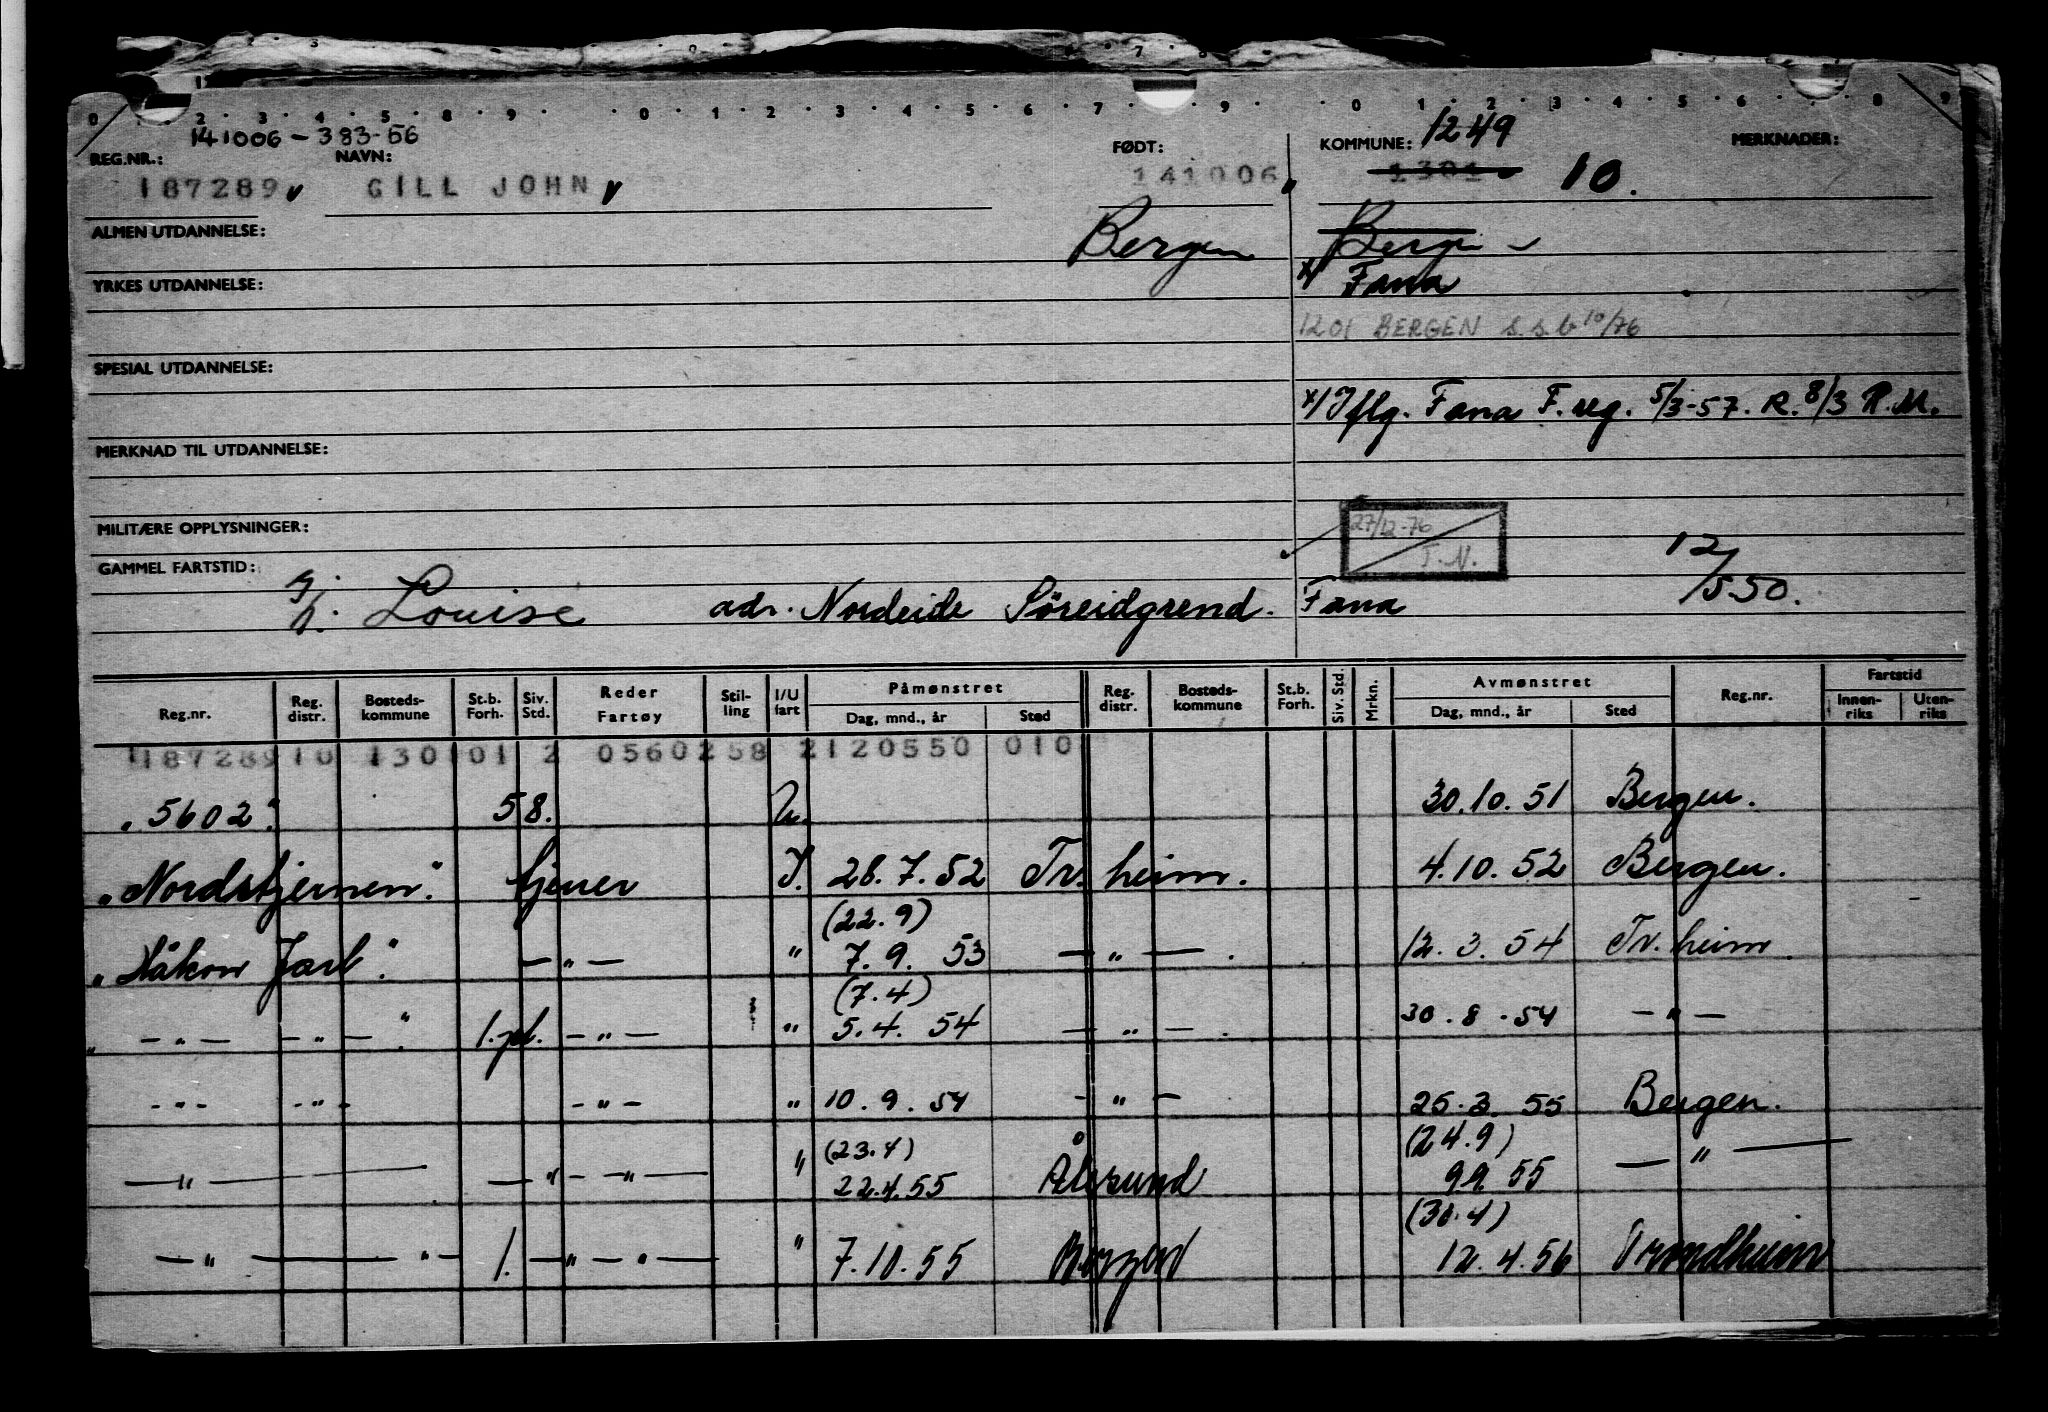 0 · 2 · 3 · 4 · 5 · 8 · 9 · 0 · 1 · 2 · 3 · 4 · 5 · 6 · 7 · 9 · 0 · 1 · 2 · 3 · 4 · 5 · 6 · 8 · 9
141006 - 383-56
REG.NR.: NAVN: FØDT: KOMMUNE: 1249 MERKNADER:
187289 GILL JOHN 141006 1301 10.
ALMEN UTDANNELSE: Bergen Bergen
YRKES UTDANNELSE: x/ Fana
1201 BERGEN s.s.b 10/76
SPESIAL UTDANNELSE:
x/ Iflg. Fana F.reg. 5/3-57. R. 8/3 R.M.
MERKNAD TIL UTDANNELSE:
MILITÆRE OPPLYSNINGER: 27/12-76 T.N.
GAMMEL FARTSTID: 12/550.
g/h. Louise adr. Nordeide Søreidgrend. Fana
Reg.nr. Reg. distr. Bosteds-kommune St.b. Forh. Siv. Std. Reder Fartøy Stil-ling I/U fart Påmønstret Dag, mnd., år Sted Reg. distr. Bosteds-kommune St.b. Forh. Siv. Std. Mrkn. Avmønstret Dag, mnd., år Sted Reg.nr. Fartstid Innen-riks Uten-riks
187289 10 1301 01 2 0560258 2120550 010
"5602" 58. U. 30.10.51 Bergen.
"Nordstjernen" tjener I. 28.7.52 Tr.heim. 4.10.52 Bergen.
(22.9)
"Håkon Jarl" — " — " 7.9.53 — " — . 12.3.54 Tr.heim.
(7.4)
" — " — — " — " 1.pl. — " — " 5.4.54 — " — . 30.8.54 — " —
- " - - " - - " - " 10.9.54 - " - 25.3.55 Bergen.
(23.4) (24.9)
— " — — " - " — " 22.4.55 Ålesund 9.9.55 — " —
(30.4)
— " — " - 1. — " — " — " 7.10.55 Bergen 12.4.56 Trondheim